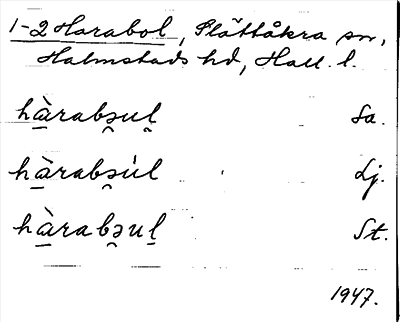 1-2 Harabol, Slättåkra sn,
Halmstads hd, Hall. l.
hà̱rabə̯uḻ Sa.
hà̱rabə̯ùl Lj.
hà̱rabə̯uḻ St.
1947.